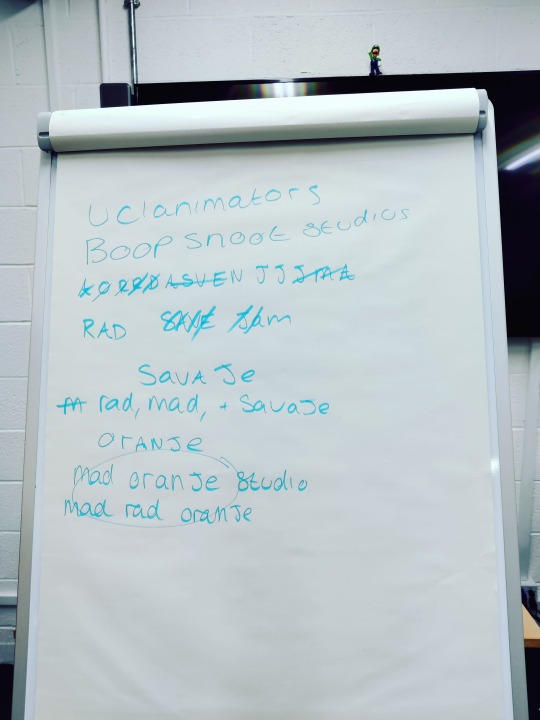 Uclanimators
BOOP SNOOT studios
RAD
SAVAJe
rad, mad, + SavaJe
OrANJe
mad oranJe studio
mad rad oranJe